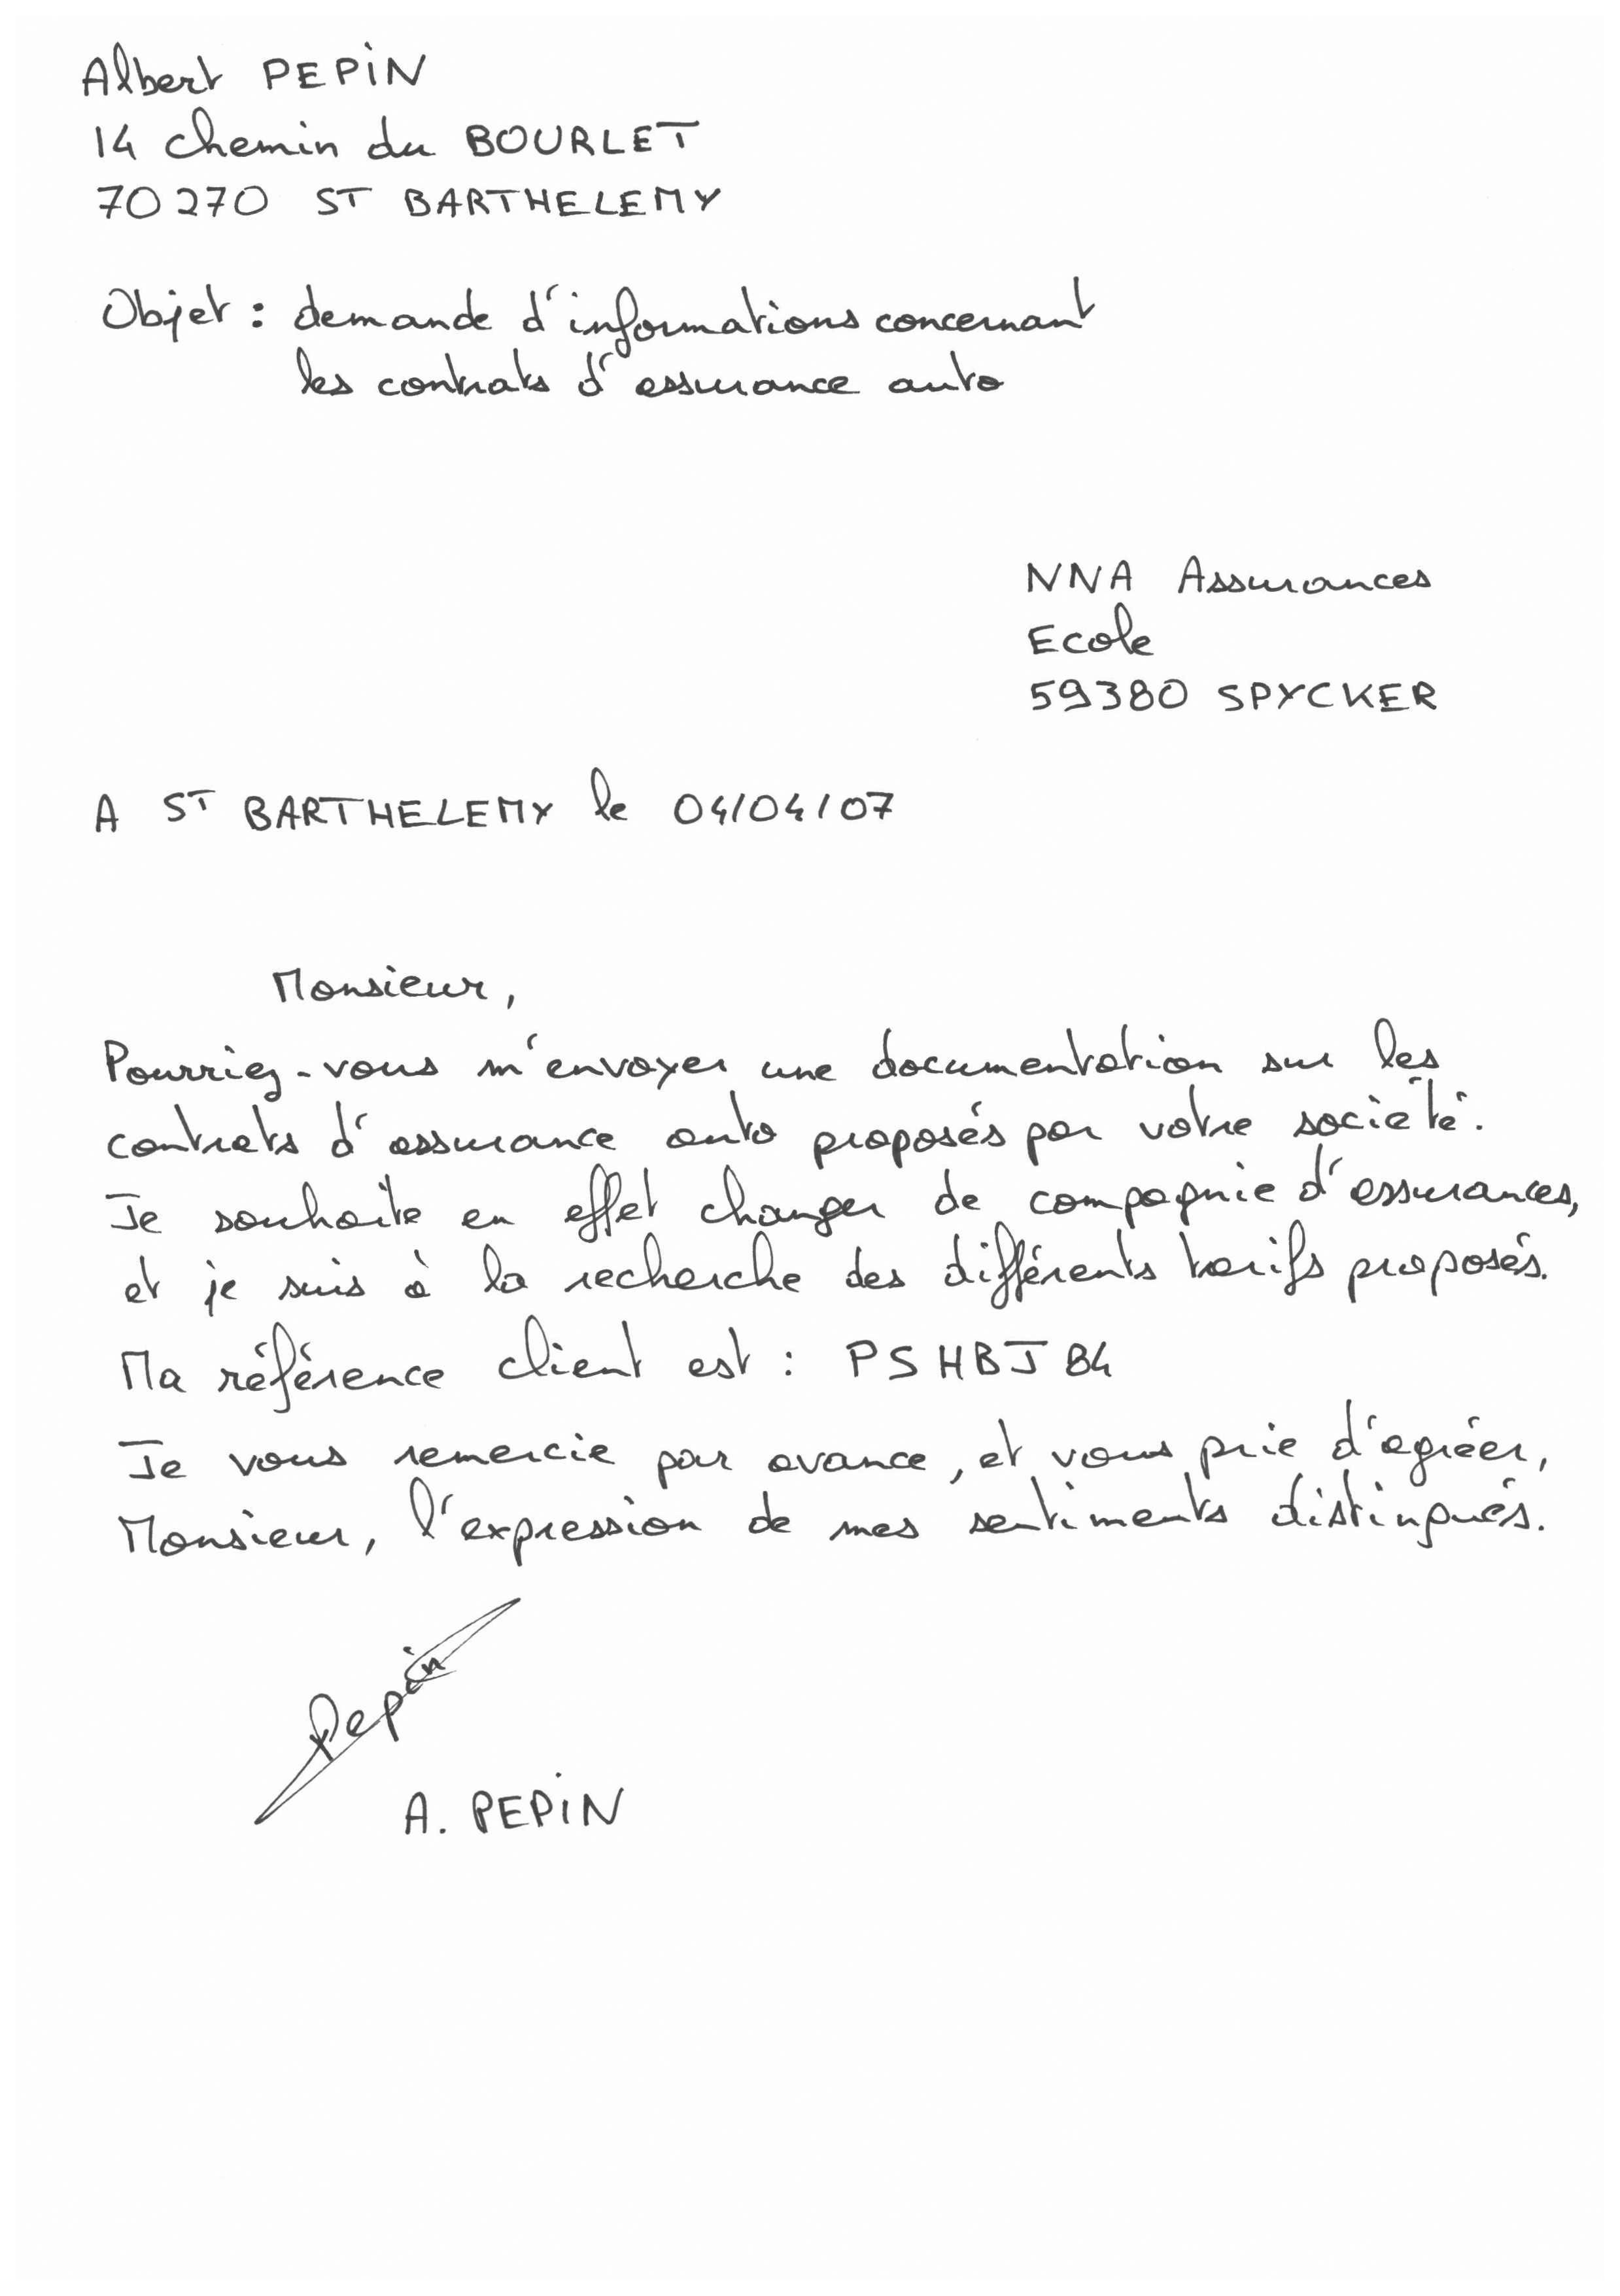 Albert PEPIN
14 chemin du BOURLET
70270 ST BARTHELEMY
Objet : demande d'informations concernant
les contrats d'assurance auto
NNA Assurances
Ecole
59380 SPYCKER
A ST BARTHELEMY le 04/04/07
Monsieur,
Pourriez-vous m'envoyer une documentation sur les
contrats d'assurance auto proposés par votre société.
Je souhaite en effet changer de compagnie d'assurances,
et je suis à la recherche des différents tarifs proposés.
Ma référence client est : PSHBJ84
Je vous remercie par avance, et vous prie d'agréer,
Monsieur, l'expression de mes sentiments distingués.
Pepin
A. PEPIN